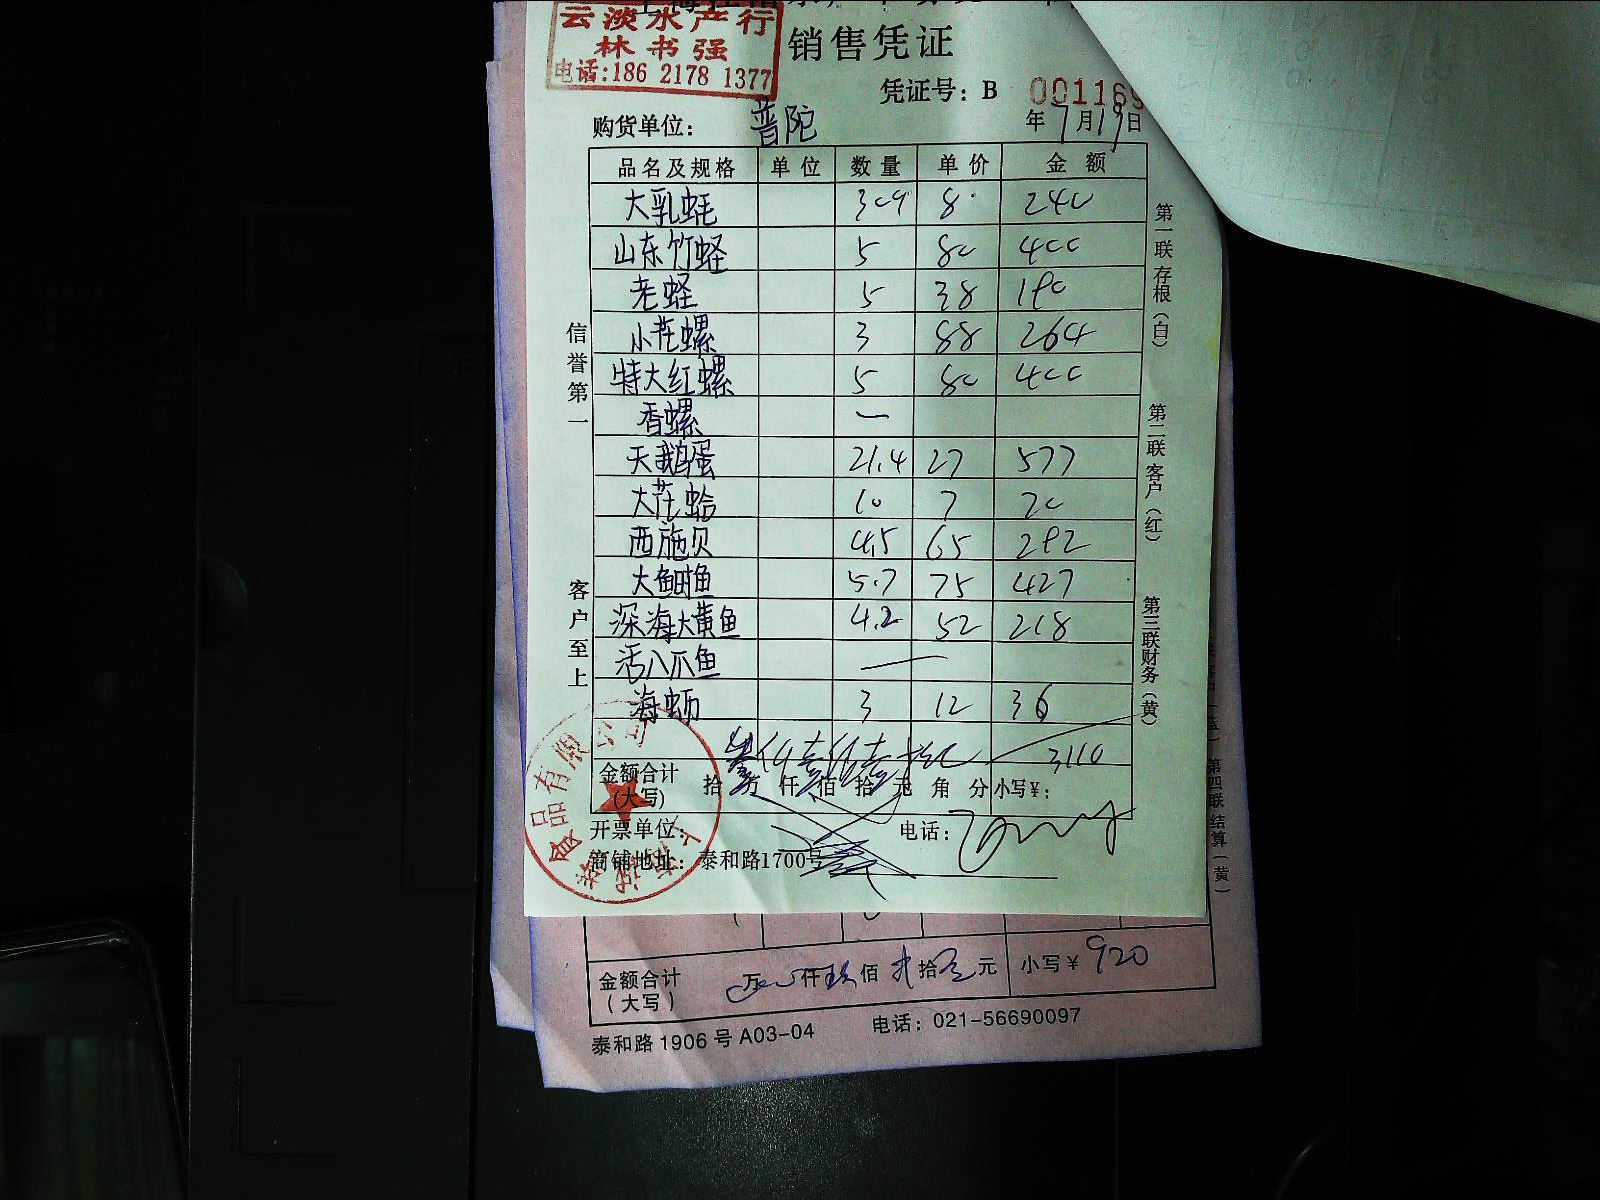 云淡水产行
林书强
电话:186 2178 1377
销售凭证
凭证号: B 001169
购货单位: 普陀 年7月19日
品名及规格 单位 数量 单价 金额
大乳蚝 30只 8 240
山东竹蛏 5 80 400
老蛏 5 38 190
小花螺 3 88 264
特大红螺 5 80 400
香螺 一
天鹅蛋 21.4 27 577
大花蛤 10 7 70
西施贝 4.5 65 292
大鲳鱼 5.7 75 427
深海大黄鱼 4.2 52 218
活八爪鱼 —
海蛎 3 12 36
叁仟壹佰壹拾元 3110
金额合计
(大写) 拾 万 仟 佰 拾 元 角 分 小写¥:
开票单位: 电话:
商铺地址: 泰和路1700号
信誉第一
客户至上
第一联 存根(白)
第二联 客户(红)
第三联 财务(黄)
第四联 结算(黄)
食品有限公司
金额合计
(大写) 万 仟 玖 佰 贰 拾 元 小写¥ 920
泰和路1906号A03-04 电话: 021-56690097